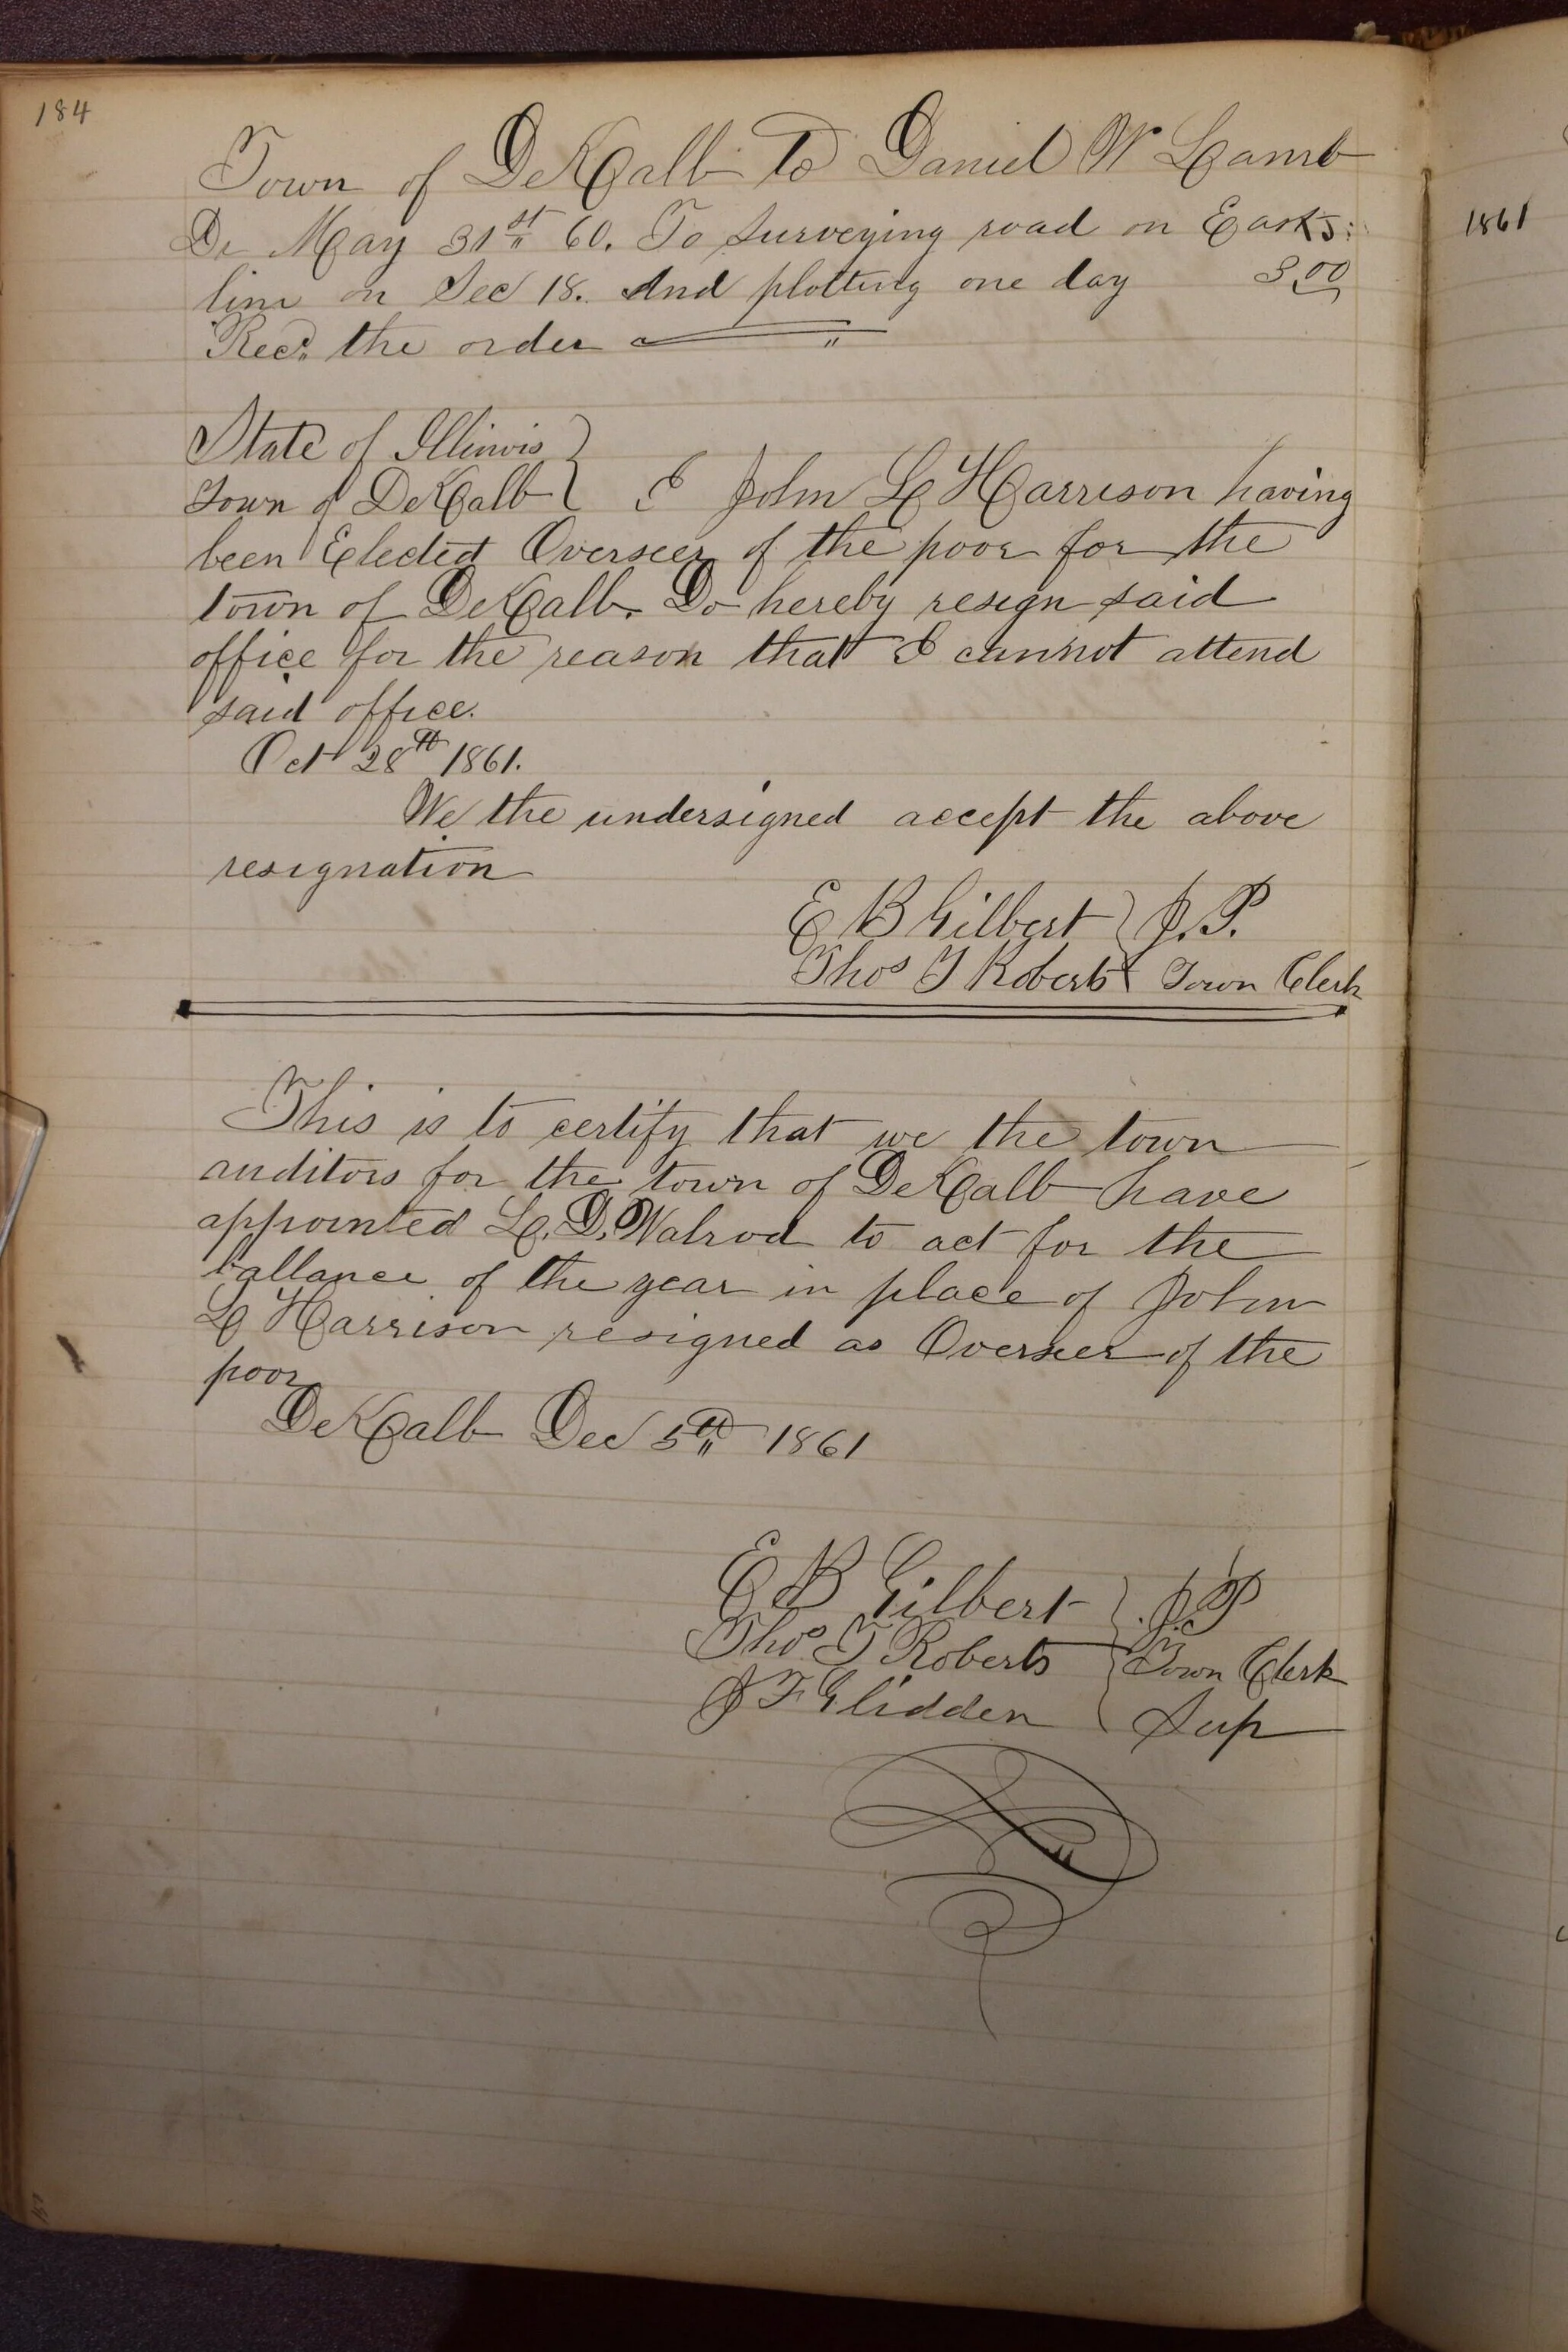 184
Town of DeKalb To Daniel W Lamb
Dr May 31st 60. To Surveying road on East
line on Sec 18. And plotting one day 3,00
Recd. the order
State of Illinois
Town of DeKalb } I John L Harrison having
been Elected Overseer of the poor for the
town of DeKalb. Do hereby resign said
office for the reason that I cannot attend
said office.
Oct 28th 1861.
We the undersigned accept the above
resignation
E B Gilbert } J. P.
Thos T Roberts } Town Clerk
This is to certify that we the town
auditors for the town of DeKalb have
appointed L. D. Walrod to act for the
ballance of the year in place of John
L Harrison resigned as Overseer of the
poor
DeKalb Dec 5th 1861
E B Gilbert } J P
Thos T Roberts } Town Clerk
J F Glidden } Sup
1861